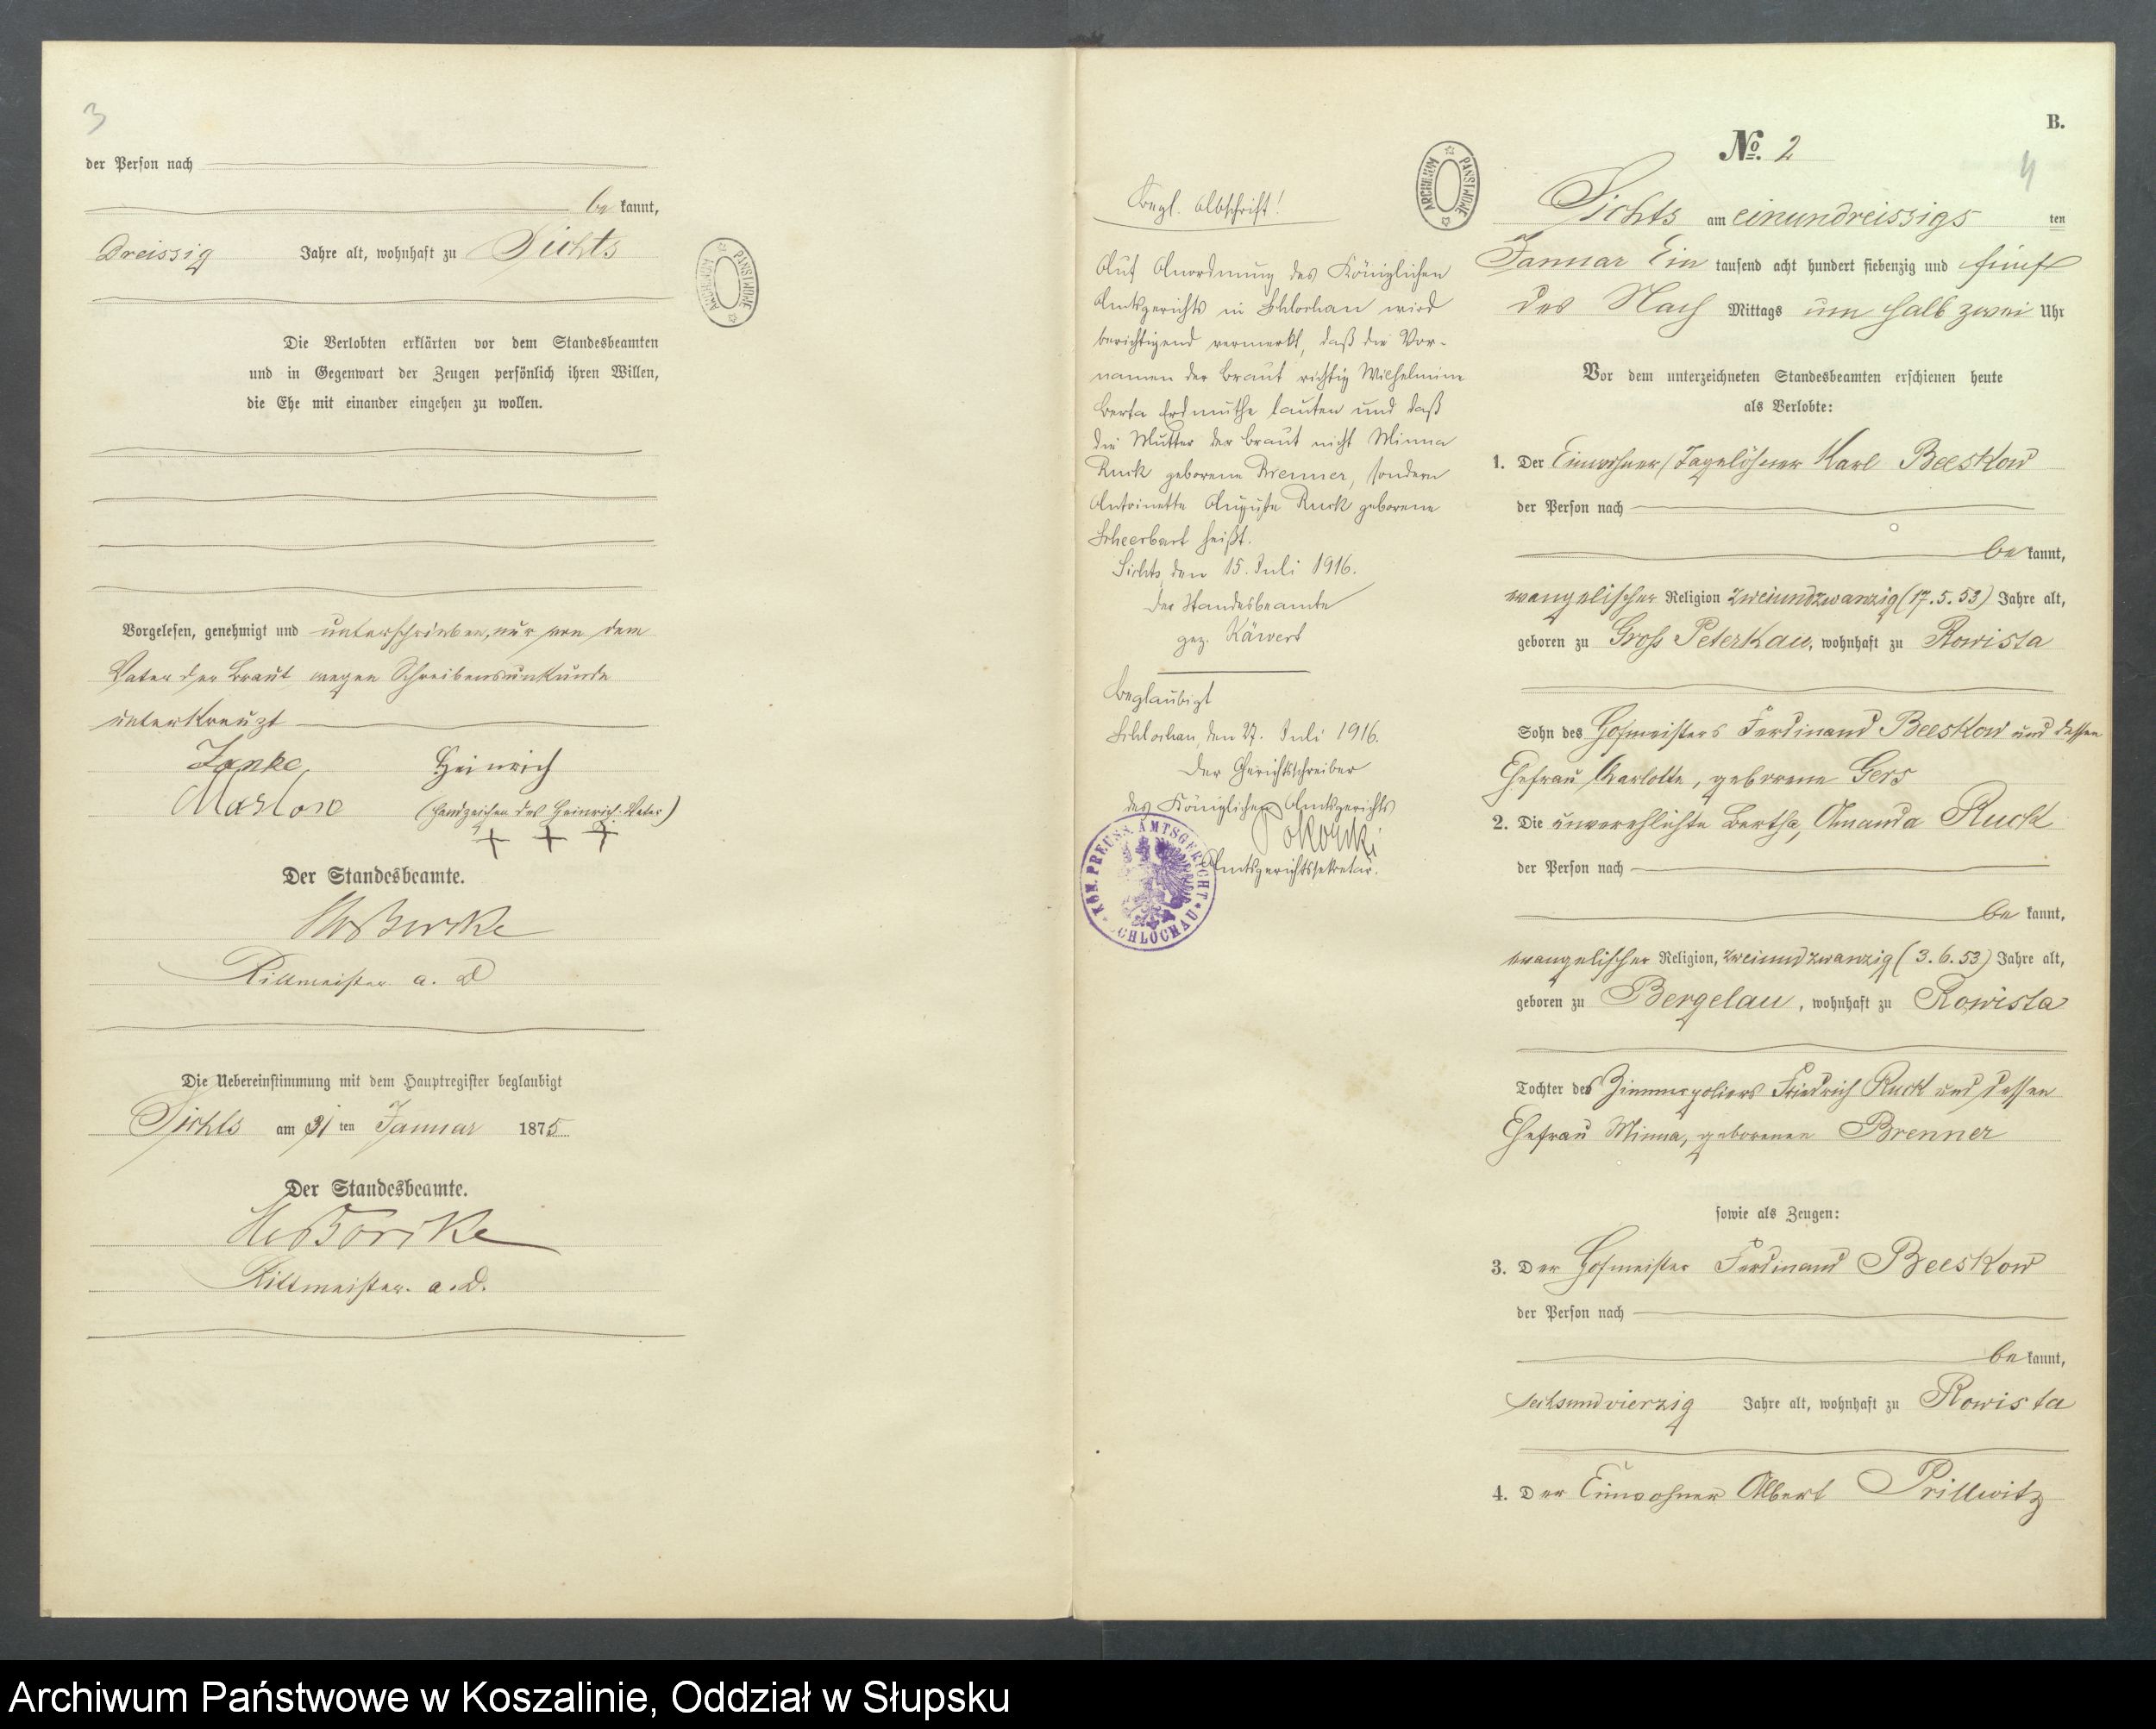 3
der Person nach
be kannt,
Dreissig Jahre alt, wohnhaft zu Sichts
Die Verlobten erklärten vor dem Standesbeamten
und in Gegenwart der Zeugen persönlich ihren Willen,
die Ehe mit einander eingehen zu wollen.
Vorgelesen, genehmigt und unterschrieben, nur von dem
Vater der Braut wegen Schreibensunkunde
unterkreuzt
Janke, Heinrich
Marlow (Handzeichen des Heinrich: Vater)
+ + +
Der Standesbeamte.
Rittmeister a. D
Die Uebereinstimmung mit dem Hauptregister beglaubigt
Sichts am 31 ten Januar 1875
Der Standesbeamte.
Rittmeister. a. D.
ARCHIWUM PAŃSTWOWE
B.
No. 2
4
Sichts am einundreissigs ten
Januar Ein tausend acht hundert siebenzig und fünf
des Nach Mittags um halb zwei Uhr
Vor dem unterzeichneten Standesbeamten erschienen heute
als Verlobte:
1. Der Einwohner/Tagelöhner Karl Beeskow
der Person nach
be kannt,
evangelischer Religion zweiundzwanzig (17. 5. 53) Jahre alt,
geboren zu Gross Peterkau, wohnhaft zu Rowista
Sohn des Hofmeisters Ferdinand Beeskow und dessen
Ehefrau Charlotte, geborene Gers
2. Die unverehlichte Bertha, Amanda Ruck
der Person nach
be kannt,
evangelischer Religion, zweiundzwanzig (3. 6. 53) Jahre alt,
geboren zu Bergelau, wohnhaft zu Rowista
Tochter des Zimmerpoliers Friedrich Ruck und dessen
Ehefrau Minna, geborenen Brenner
sowie als Zeugen:
3. Der Hofmeister Ferdinand Beeskow
der Person nach
be kannt,
sechsundvierzig Jahre alt, wohnhaft zu Rowista
4. Der Einwohner Albert Prillwitz
Begl. Abschrift!
Auf Anordnung des Königlichen
Amtsgerichts in Schlochau wird
berichtigend vermerkt, daß die Vor-
namen der Braut richtig Wilhelmine
Berta Erdmuthe lauten und daß
die Mutter der Braut nicht Minna
Ruck geborene Brenner, sondern
Antoinette Auguste Ruck geborene
Scheerbart heißt.
Sichts, den 15. Juli 1916.
Der Standesbeamte
gez. Käwert
Beglaubigt
Schlochau, den 27. Juli 1916.
Der Gerichtsschreiber
des Königlichen Amtsgerichts
Amtsgerichtssekretär.
KÖN. PREUSS. AMTSGERICHT * SCHLOCHAU *
ARCHIWUM PAŃSTWOWE
Archiwum Państwowe w Koszalinie, Oddział w Słupsku